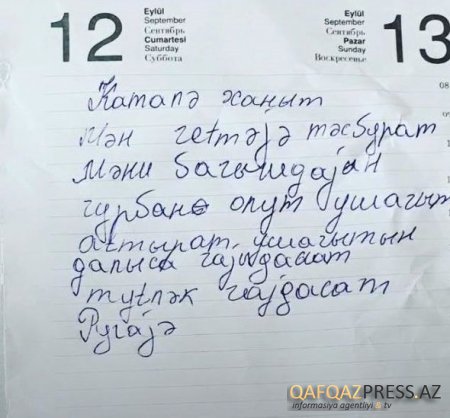 12
Eylül
September
Сентябрь
Cumartesi
Saturday
Суббота
Eylül
September
Сентябрь
Pazar
Sunday
Воскресенье
13
08
Камалә ханым
Мән гetмәјә мәсбурам
Мәни бағышлајын
гурбан олум ушағым
ушағымын
гајыдасам
мүtләк гајдасам
Ругајә
QAFQAZPRESS.AZ
informasiya agentliyi & tv